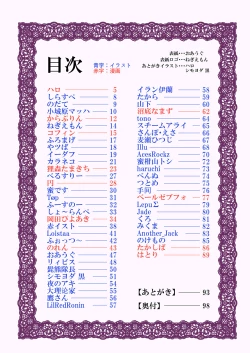 表紙･･･おあうぐ
表紙ロゴ･･･ねぎえもん
あとがきイラスト･･･ハロ
シモヨダ 黒
目次
青字：イラスト
赤字：漫画
ハロ 5
しらすべ 8
のだて 9
小城原マッハ 10
からぶりん 12
ねぎえもん 14
コフィン 15
ふろまげ 17
やつば 18
イーダフ 19
カラネコ 21
狸森たまきち 23
べるすりー 27
円 28
蜜です 30
Top 31
ぷーすのー 32
しょ～らんぺ 33
岡田ひよあき 34
赤イスト 38
Loistaa 41
ふぉっつ～ 42
のれん 43
おあうぐ 47
リィビス 48
髭熊隊長 50
シモヨダ 黒 51
夜のアキ 54
大理論家 55
鷹さん 56
LilRedRonin 57
イラン伊蘭 58
たから 59
山下 60
沼底なまず 62
tono 64
スチームアライ 65
さんぽ・えさ 66
麦瀬ひつじ 67
Illu 68
AcesRockz 70
蜜柑山トシ 72
haruchi 73
ぺんぬ 74
つとめ 75
手向 76
ペールゼブフォ 77
LepuΣ 79
Jade 80
くろ 81
みくま 82
Another_Jack 83
のけもの 84
たかしば 86
はとり 89
【あとがき】 93
【奥付】 98